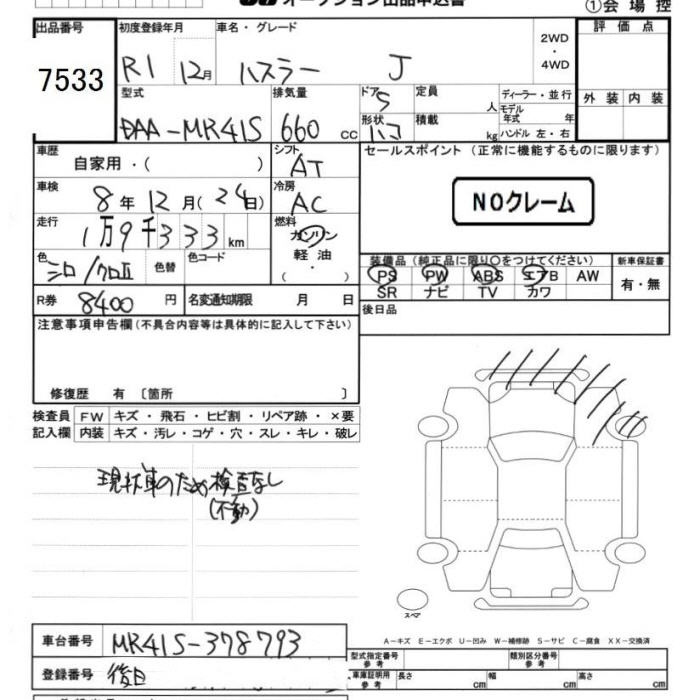 オークション出品申込書
①会場控
出品番号 初度登録年月 車名・グレード 2WD ・ 4WD 評価点
7533 R1 12月 ハスラー J
型式 排気量 ドア 5 定員 人 ディーラー・並行 外装 内装
DAA-MR41S 660 cc 形状 ハコ 積載 kg モデル年式 年 ハンドル 左・右
車歴 自家用・( ) シフト AT セールスポイント (正常に機能するものに限ります)
車検 8年 12月 (24日) 冷房 AC NOクレーム
走行 1万9千333km 燃料 ガソリン 軽油・( ・ )
色 シロ/クロⅡ 色替 色コード 装備品 (純正品に限り○をつけてください) 新車保証書
PS PW ABS エアB AW 有・無
SR ナビ TV カワ
R券 8400円 名変通知期限 月 日 後日品
注意事項申告欄 (不具合内容等は具体的に記入して下さい)
修復歴 有 〔箇所 〕
検査員 FW キズ・飛石・ヒビ割・リペア跡・×要
記入欄 内装 キズ・汚レ・コゲ・穴・スレ・キレ・破レ
現状車のため検査なし
(不動)
スペア
A-キズ E-エクボ U-凹み W-補修跡 S-サビ C-腐食 XX-交換済
車台番号 MR41S-378793
型式指定番号 参考 類別区分番号 参考
登録番号 後日
車庫証明用 参考 長さ cm 幅 cm 高さ cm